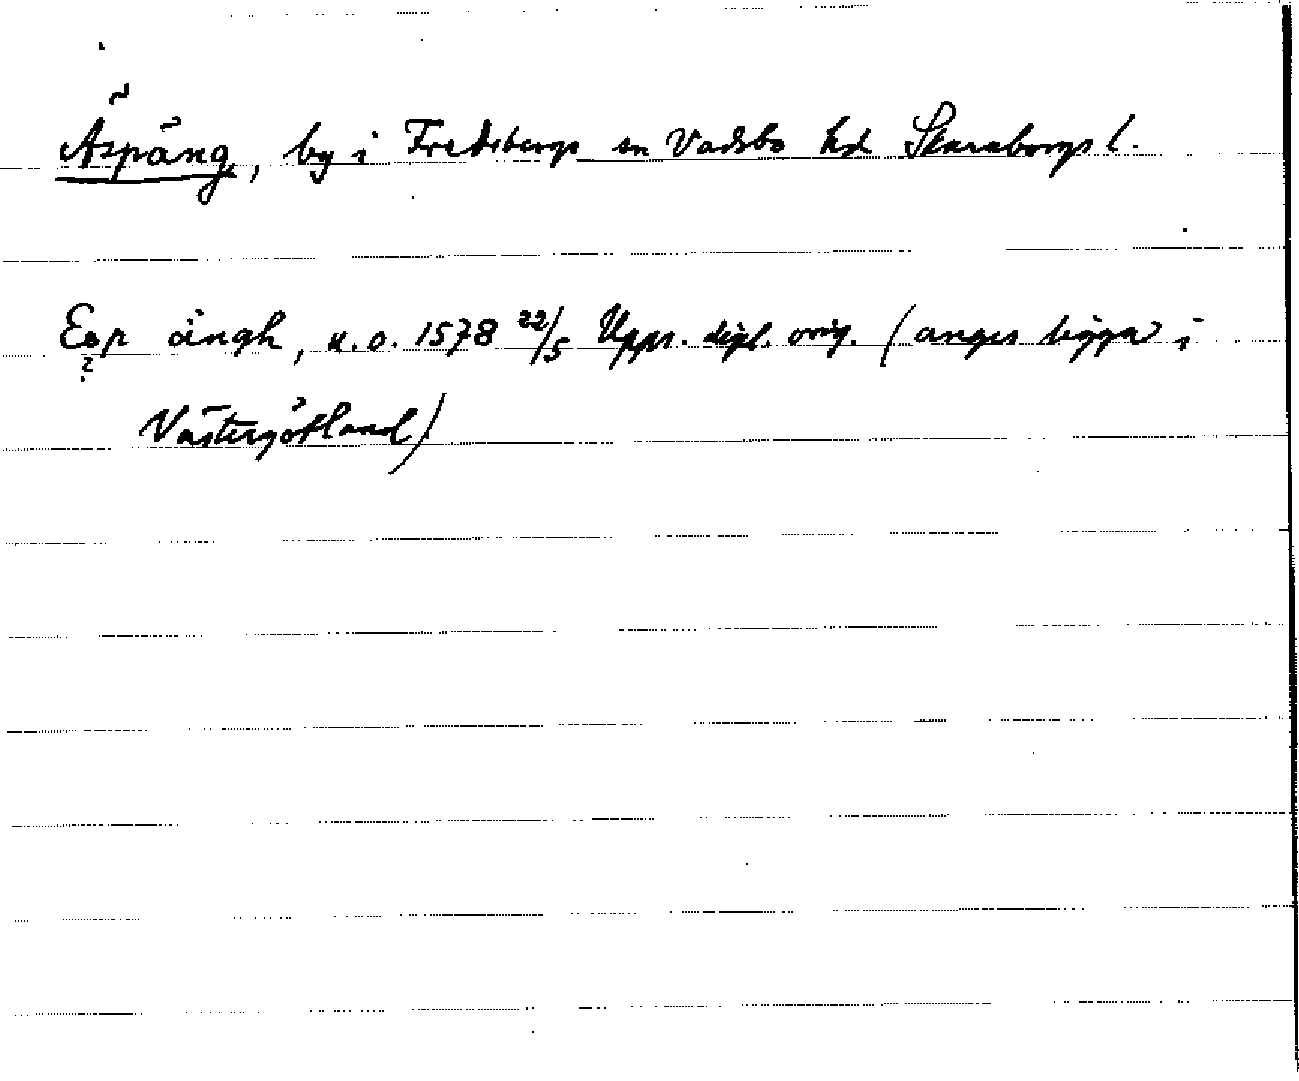 Äspäng, by i Fredsbergs sn Vadsbo hd Skaraborgs l.
Esp ängh, u.o. 1578 22/5 Upps. dipl. orig. (anges ligga i
?
Västergötland)